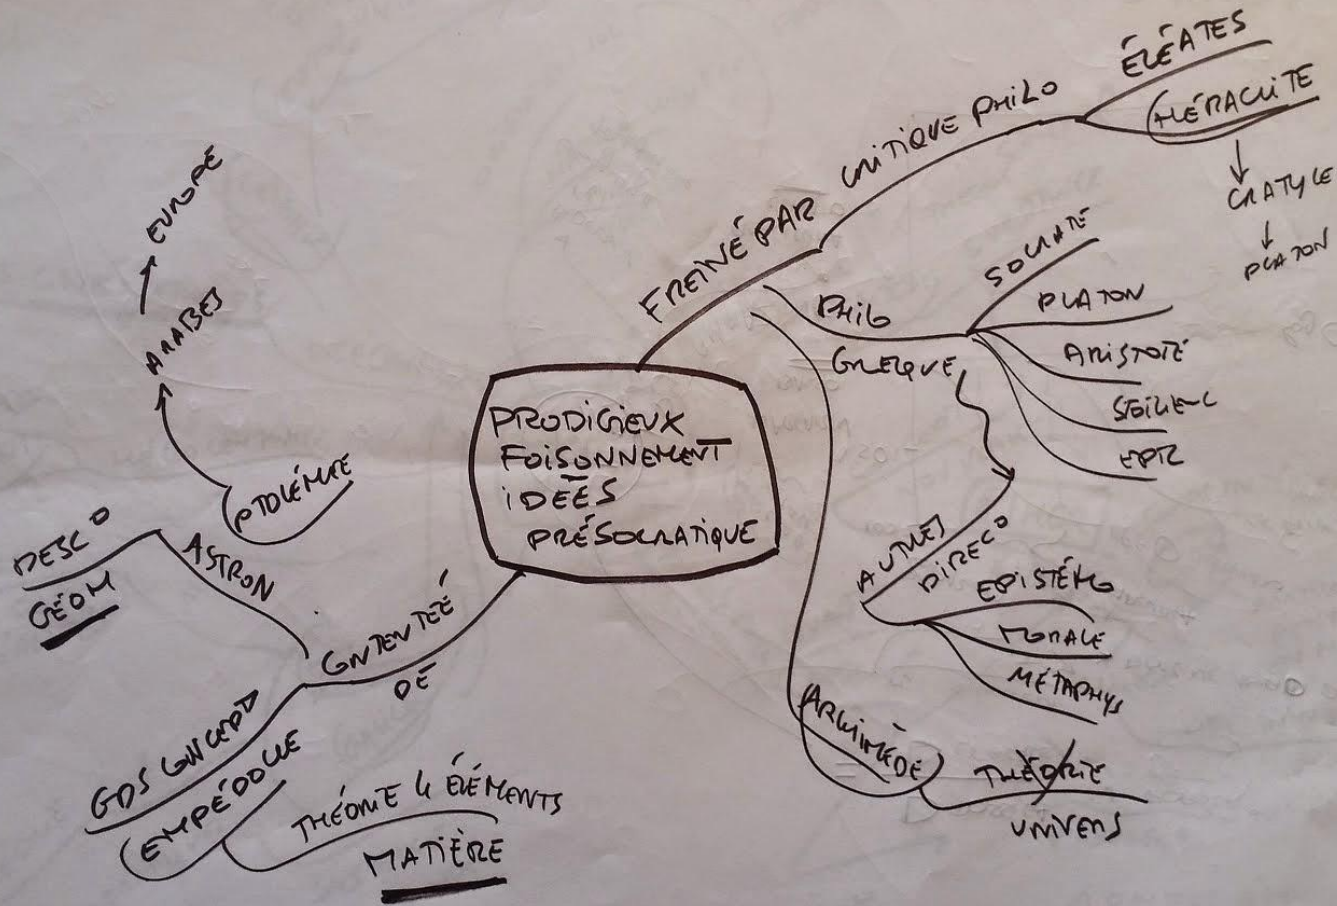 PRODIGIEUX
FOISONNEMENT
IDÉES
PRÉSOCRATIQUE
FREINÉ PAR
CRITIQUE PHILO
ÉLÉATES
HÉRACLITE
CRATYLE
PLATON
PHILO
GRECQUE
SOCRATE
PLATON
ARISTOTE
STOÏCIENC
EPIC
AUTRES
DIREC°
EPISTÉMO
MORALE
MÉTAPHYS
ARCHIMÈDE
THÉORIE
UNIVERS
CONTENTÉE
DE
ASTRON
DESC°
GÉOM
PTOLÉMÉE
ARABES
EUROPE
GDS CONCEPT
EMPÉDOCLE
THÉORIE 4 ÉLÉMENTS
MATIÈRE